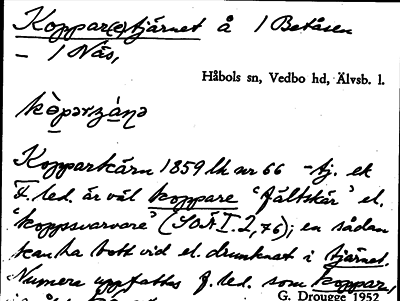 Koppar(e)tjärnet å 1 Betåsen
– 1 Näs,
Håbols sn, Vedbo hd, Älvsb. l.
Koppartkärn 1859 lk nr 66 – tj. ek
F. led. är väl koppare 'fältskär' el.
'koppsvarvare' (SOÄ I. 2, 76); en sådan
kan ha bott vid el. drunknat i tjärnet.
Numera uppfattas f. led. som koppar,
G. Drougge 1952